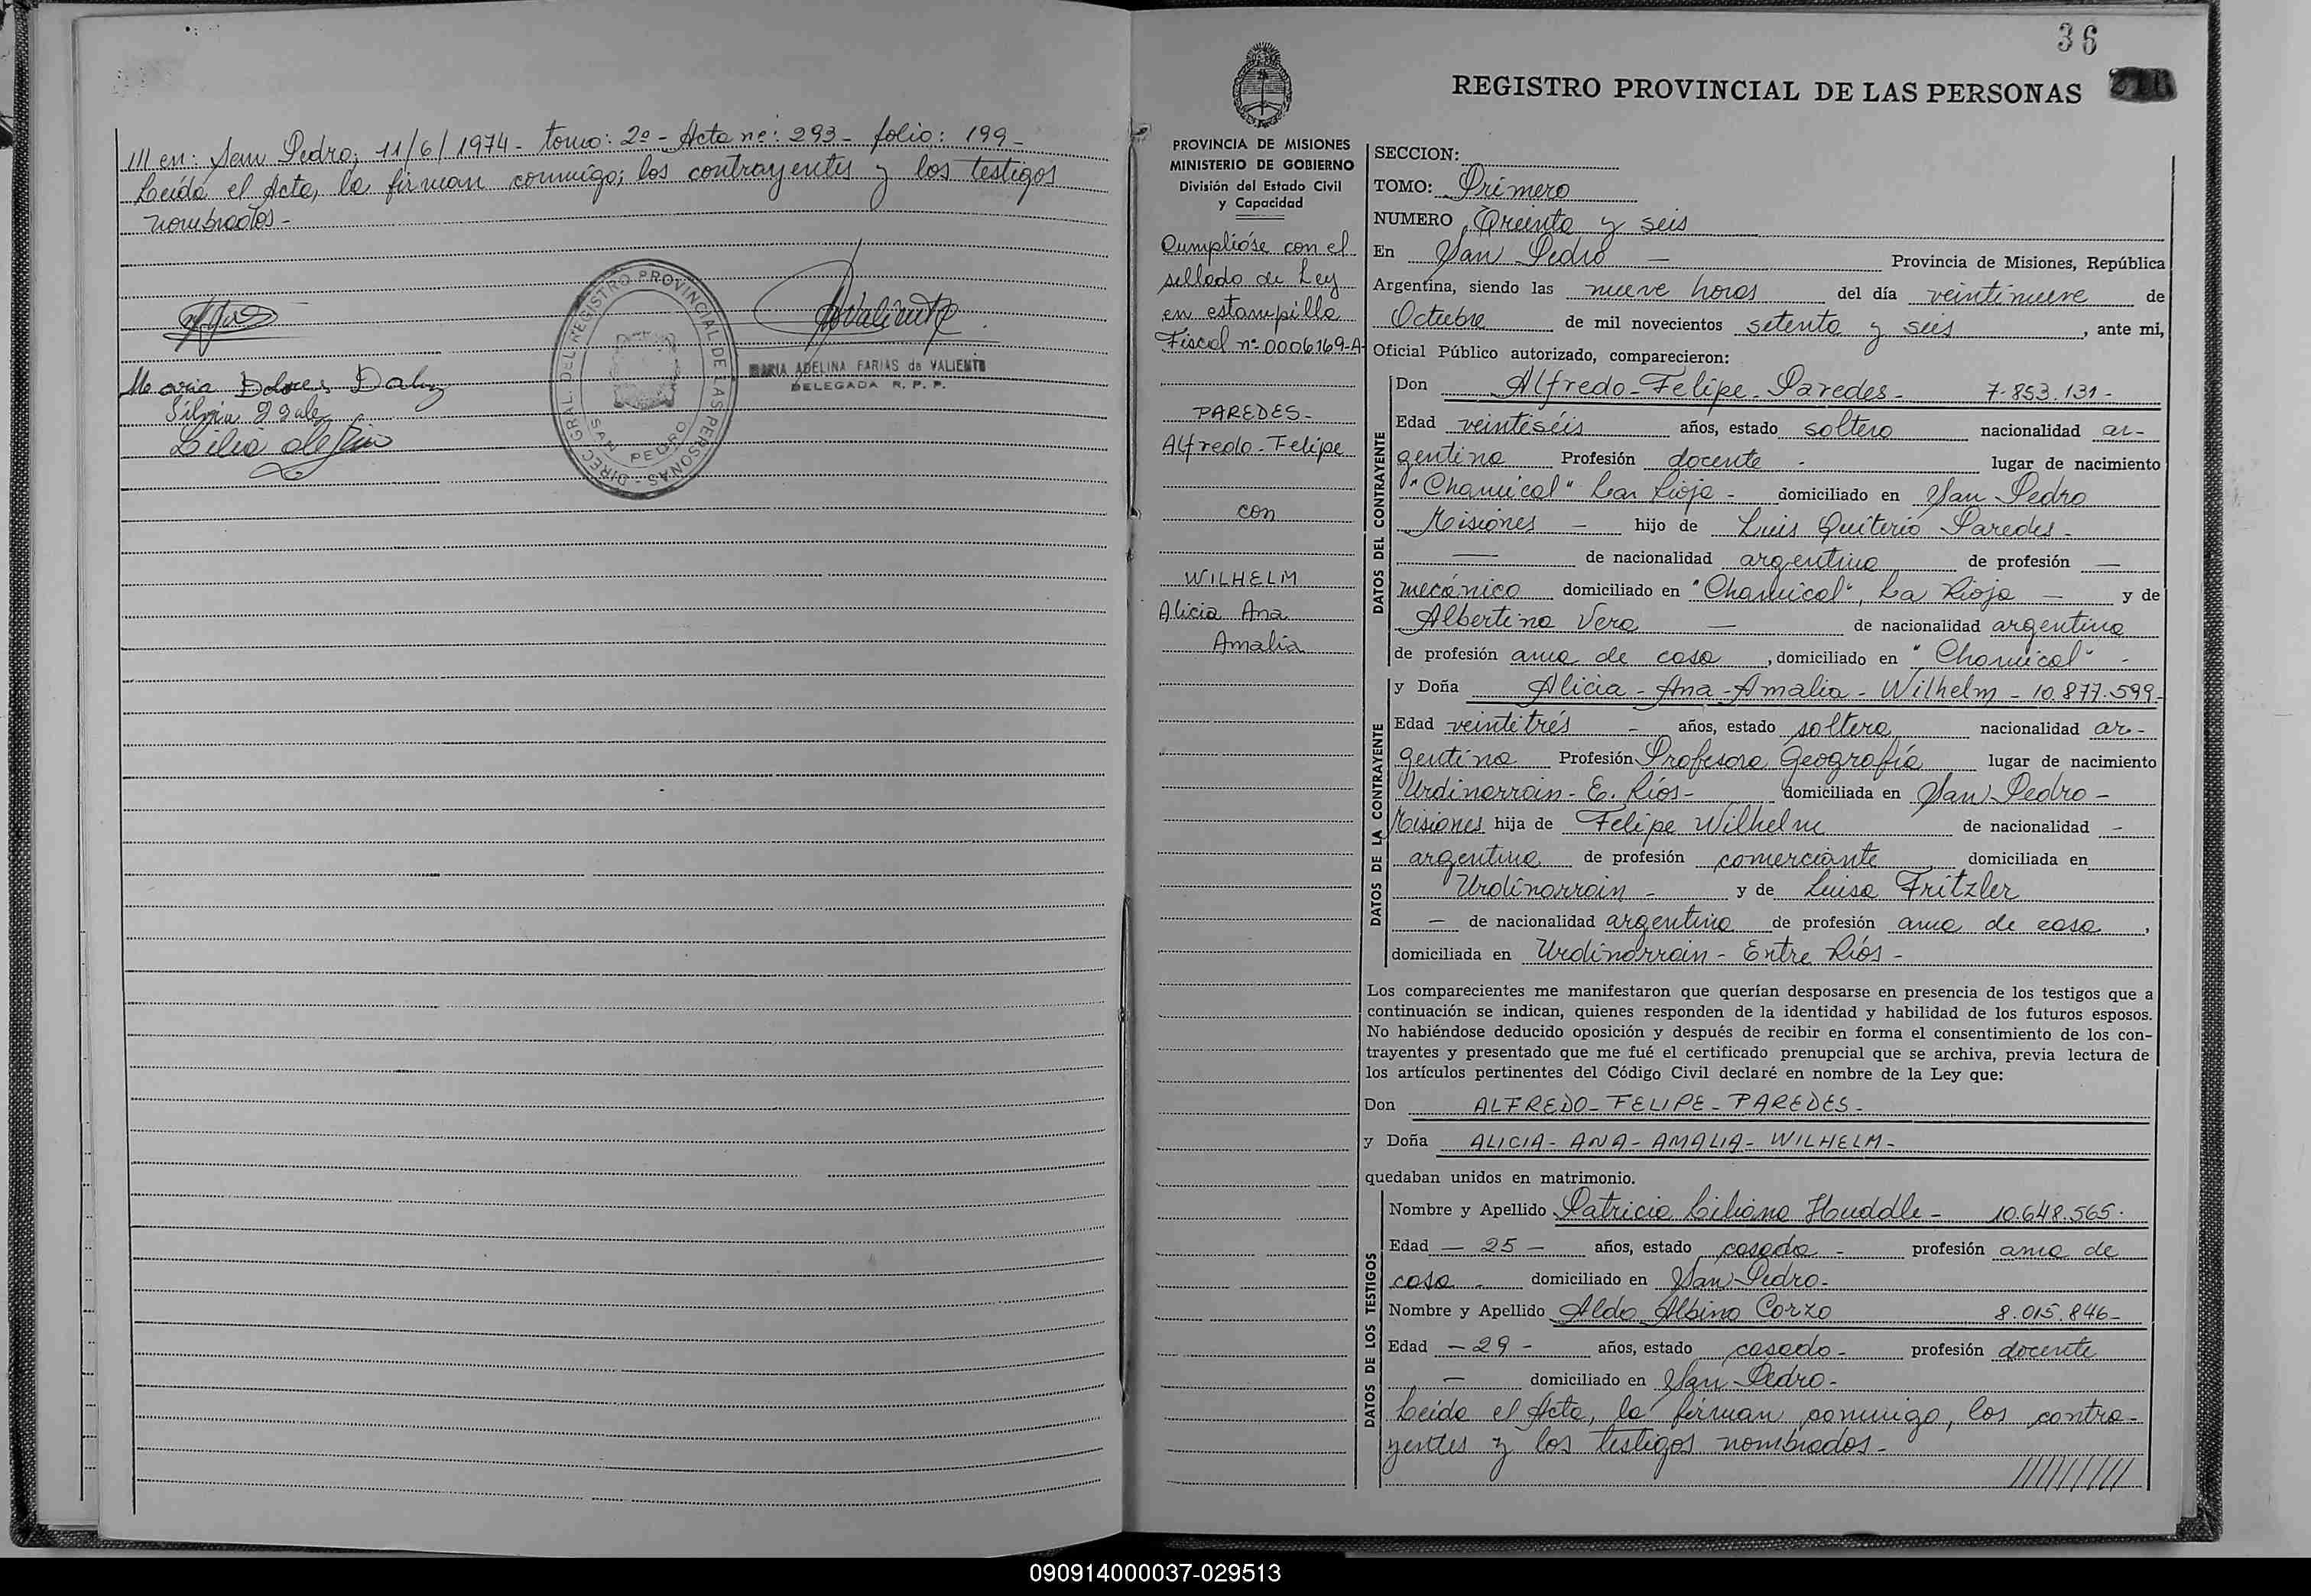 /// en: San Pedro, 11/6/1974 - tomo: 2º - Acta nº: 293 - folio: 199 -
Leída el Acta, la firman conmigo; los contrayentes y los testigos
nombrados -
Maria Dolores Daluz
DIREC. GRAL. DEL REGISTRO PROVINCIAL DE LAS PERSONAS -
SAN PEDRO
MARIA ADELINA FARIAS de VALIENTE
DELEGADA R. P. P.
36
REGISTRO PROVINCIAL DE LAS PERSONAS
PROVINCIA DE MISIONES
MINISTERIO DE GOBIERNO
División del Estado Civil
y Capacidad
Cumplióse con el
sellado de Ley
en estampilla
Fiscal nº 0006169-A
PAREDES -
Alfredo - Felipe
con
WILHELM
Alicia Ana
Amalia
SECCION:
TOMO: Primero
NUMERO Treinta y seis
En San Pedro — Provincia de Misiones, República
Argentina, siendo las nueve horas del día veintinueve de
Octubre de mil novecientos setenta y seis, ante mi,
Oficial Público autorizado, comparecieron:
DATOS DEL CONTRAYENTE
Don Alfredo - Felipe - Paredes - 7.853.131 -
Edad veintiséis años, estado soltero nacionalidad ar-
gentina Profesión docente - lugar de nacimiento
"Chamical" La Rioja - domiciliado en San Pedro
Misiones — hijo de Luis Quiterio Paredes -
— de nacionalidad argentina de profesión —
mecánico domiciliado en "Chamical", La Rioja — y de
Albertina Vera — de nacionalidad argentina
de profesión ama de casa, domiciliado en "Chamical" -
DATOS DE LA CONTRAYENTE
y Doña Alicia - Ana - Amalia - Wilhelm - 10.877.599 -
Edad veintitrés - años, estado soltera nacionalidad ar-
gentina Profesión Profesora Geografía lugar de nacimiento
Urdinarrain - E. Ríos - domiciliada en San Pedro -
Misiones hija de Felipe Wilhelm de nacionalidad -
argentina de profesión comerciante domiciliada en
Urdinarrain - y de Luisa Fritzler
— de nacionalidad argentina de profesión ama de casa,
domiciliada en Urdinarrain - Entre Ríos -
Los comparecientes me manifestaron que querían desposarse en presencia de los testigos que a
continuación se indican, quienes responden de la identidad y habilidad de los futuros esposos.
No habiéndose deducido oposición y después de recibir en forma el consentimiento de los con-
trayentes y presentado que me fué el certificado prenupcial que se archiva, previa lectura de
los artículos pertinentes del Código Civil declaré en nombre de la Ley que:
Don ALFREDO - FELIPE - PAREDES -
y Doña ALICIA - ANA - AMALIA - WILHELM -
quedaban unidos en matrimonio.
DATOS DE LOS TESTIGOS
Nombre y Apellido Patricia Liliana Huddle - 10.648.565 -
Edad — 25 — años, estado casada - profesión ama de
casa - domiciliado en San Pedro -
Nombre y Apellido Aldo Albino Corzo 8.015.846 -
Edad — 29 - años, estado casado - profesión docente
— domiciliado en San Pedro -
Leída el Acta, la firman conmigo, los contra-
yentes y los testigos nombrados -
//////////
090914000037-029513